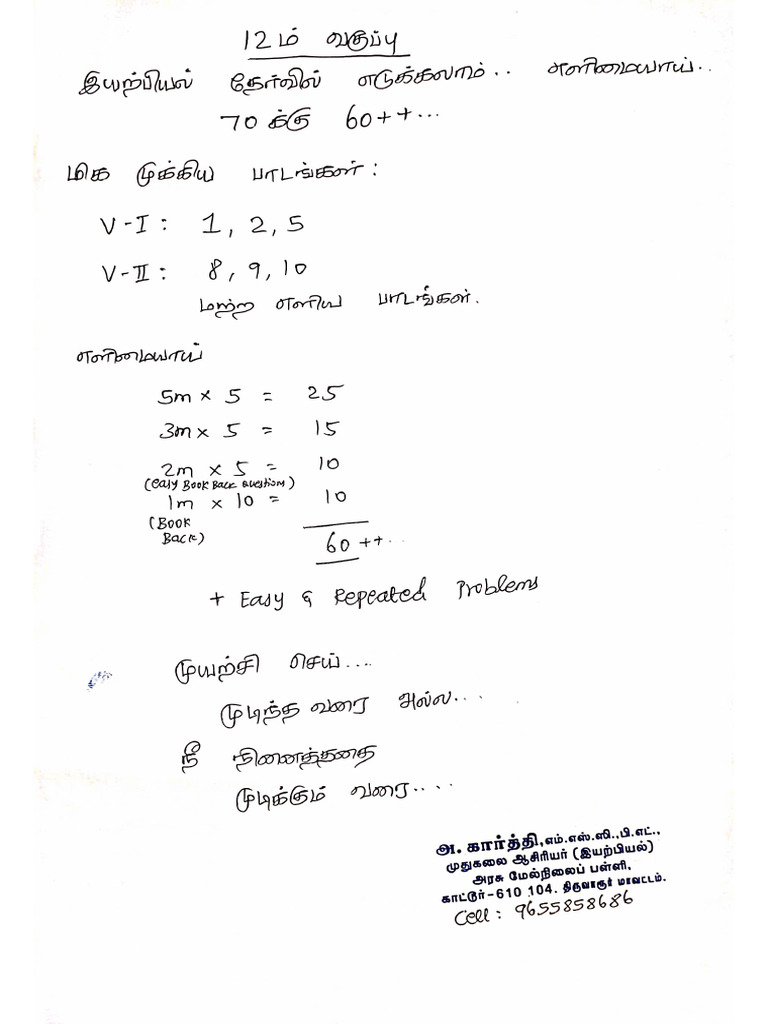 12ம் வகுப்பு
இயற்பியல் தேர்வில் எடுக்கலாம்.. எளிமையாய்..
70 க்கு 60++...
மிக முக்கிய பாடங்கள்:
V-I: 1, 2, 5
V-II: 8, 9, 10
மற்ற எளிய பாடங்கள்.
எளிமையாய்
5m × 5 = 25
3m × 5 = 15
2m × 5 = 10
(easy Book Back Question)
1m × 10 = 10
(Book
Back)
60 ++...
+ Easy & Repeated Problems
முயற்சி செய்....
முடிந்த வரை அல்ல....
நீ நினைத்ததை
முடிக்கும் வரை.....
அ. கார்த்தி, எம்.எஸ்.ஸி., பி.எட்.,
முதுகலை ஆசிரியர் (இயற்பியல்)
அரசு மேல்நிலைப் பள்ளி,
காட்டூர்-610 104. திருவாரூர் மாவட்டம்.
Cell: 9655858686